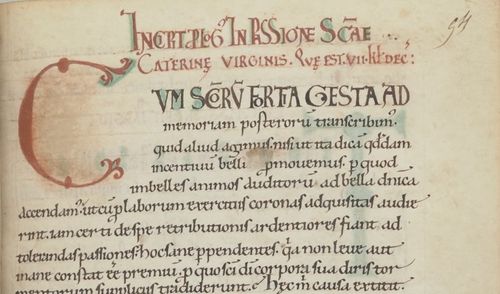 94
INCPT PLOG IN PASSIONE SCAE
CATERINĘ VIRGINIS. QVĘ EST. VII. KL DEC:
CVM SCORV FORTIA GESTA AD
memoriam posteroru transcribim.
quid aliud agimus. nisi ut ita dica qdda
incentiuu belli pmouemus. p quod
imbelles animos auditoru ad bella dnica
accendam. ut cu plaborum exercitiis coronas adquisitas audie
rint. iam certi de spe retributionis ardentiores fiant ad
tolerandas passiones. hoc sane ppendentes. qa non leue aut
inane constat eē premiu. p quo sci di corpora sua diris tor
mentorum suppliciis tradiderunt. Hęc in causa extitit.